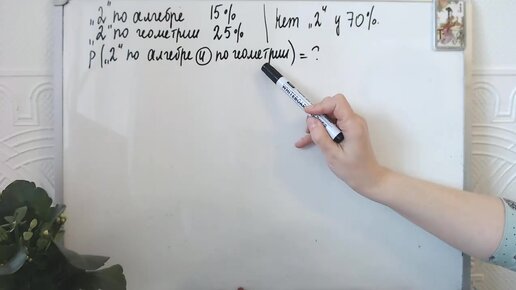 „2“ по алгебре 15% | нет „2“ у 70%.
„2“ по геометрии 25%
P(„2“ по алгебре и по геометрии) = ?